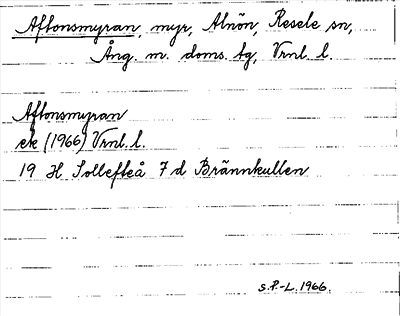 Aftonsmyran, myr, Alnön, Resele sn,
Ång. m. doms. tg, Vrnl. l.
Aftonsmyran
ek (1966) Vrnl. l.
19 H Sollefteå 7 d Brännkullen
S.P.-L. 1966.